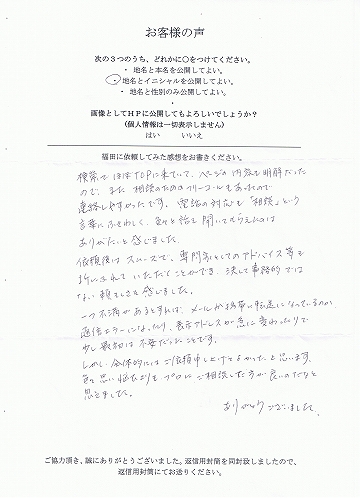 お客様の声
次の3つのうち、どれかに○をつけてください。
・ 地名と本名を公開してよい。
・ 地名とイニシャルを公開してよい。
・ 地名と性別のみ公開してよい。
・
画像としてHPに公開してもよろしいでしょうか?
(個人情報は一切表示しません)
はい いいえ
福田に依頼してみた感想をお書きください。
検索で ほぼTOPに来ていて、ページの内容も明解だった
ので、また 相談のためのフリーコールもあったので
連絡しやすかったです。電話の対応も「相談」という
言葉にふさわしく、色々と話を聞いてもらえたのは
ありがたいと感じました。
依頼後はスムーズで、専門家としてのアドバイス等も
折りにふれて いただくことができ、決して事務的では
ない頼もしさを感じました。
一つ不満があるとすれば、メールが携帯に転送になっているのか
返信エラーになったり、表示アドレスが急に変わったりで
少し最初は不安だったことです。
しかし、全体的にはご依頼申し上げてよかったと思います。
色々思い悩むよりも プロに ご相談した方が良いのだなと
思えました。
ありがとうございました。
ご協力頂き、誠にありがとうございました。返信用封筒を同封致しましたので、
返信用封筒にてお送りください。